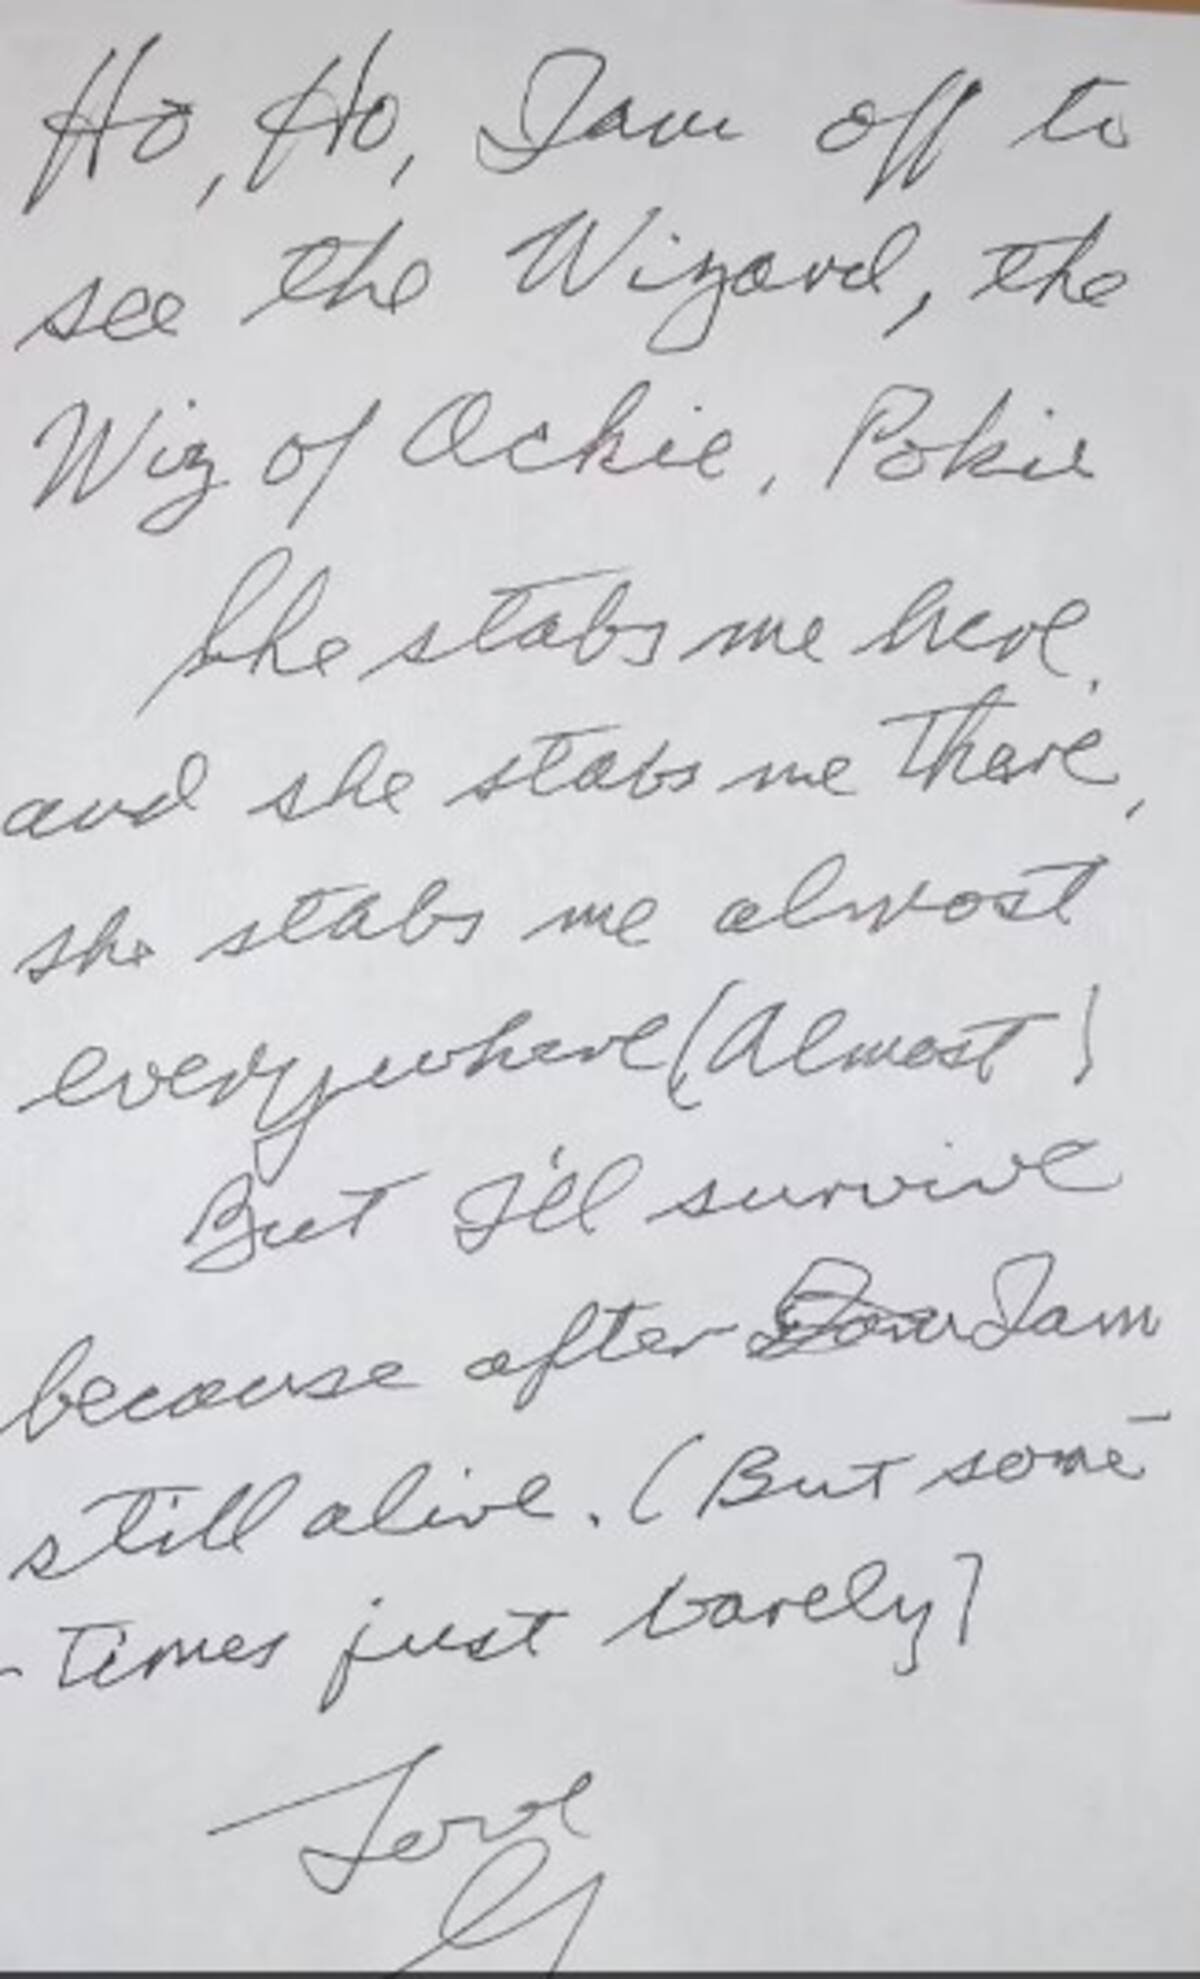 Ho, Ho, I am off to
see the Wizard, the
Wiz of Ockie, Pokie
She stabs me here,
and she stabs me there,
she stabs me almost
everywhere (Almost)
But I'll survive
because after I am
still alive. (But some-
-times just barely)